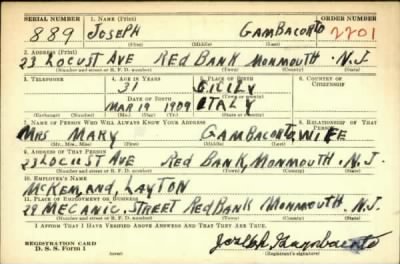 SERIAL NUMBER 1. NAME (Print) ORDER NUMBER
889 JOSEPH GAMBACORTO 2201
(First) (Middle) (Last)
2. ADDRESS (Print)
23 LOCUST AVE RED BANK MONMOUTH . N.J.
(Number and street or R. F. D. number) (Town) (County) (State)
3. TELEPHONE 4. AGE IN YEARS 5. PLACE OF BIRTH 6. COUNTRY OF CITIZENSHIP
31 SICILY
DATE OF BIRTH
MAR 19 1909 ITALY
(Exchange) (Number) (Mo.) (Day) (Yr.) (State or country)
7. NAME OF PERSON WHO WILL ALWAYS KNOW YOUR ADDRESS 8. RELATIONSHIP OF THAT PERSON
MRS MARY GAMBACORTO WIFE
(Mr., Mrs., Miss) (First) (Middle) (Last)
9. ADDRESS OF THAT PERSON
23 LOCUST AVE RED BANK, MONMOUTH, N.J.
(Number and street or R. F. D. number) (Town) (County) (State)
10. EMPLOYER'S NAME
MCKEM, AND, LAYTON
11. PLACE OF EMPLOYMENT OR BUSINESS
29 MECANIC. STREET RED BANK MONMOUTH N.J.
(Number and street or R. F. D. number) (Town) (County) (State)
I AFFIRM THAT I HAVE VERIFIED ABOVE ANSWERS AND THAT THEY ARE TRUE.
REGISTRATION CARD
D. S. S. Form 1
Joseph Gambacorto
(Registrant's signature)